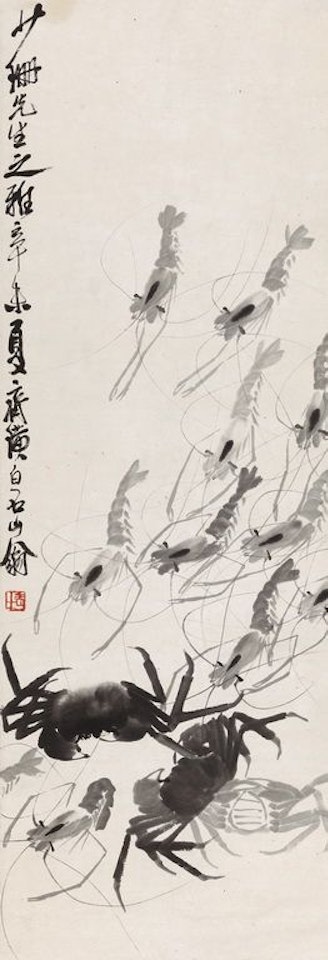 少珊先生之雅辛未夏齊璜白石山翁